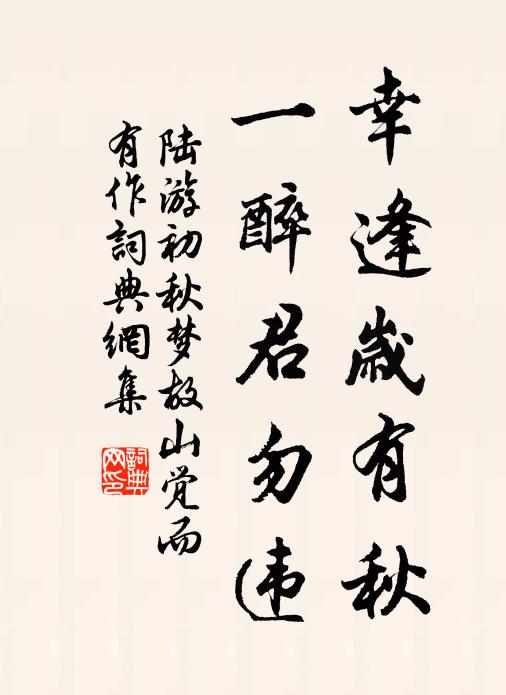 幸逢歲有秋
一醉君勿违
陆游初秋梦故山觉而
有作詞典網集
詞典
网印